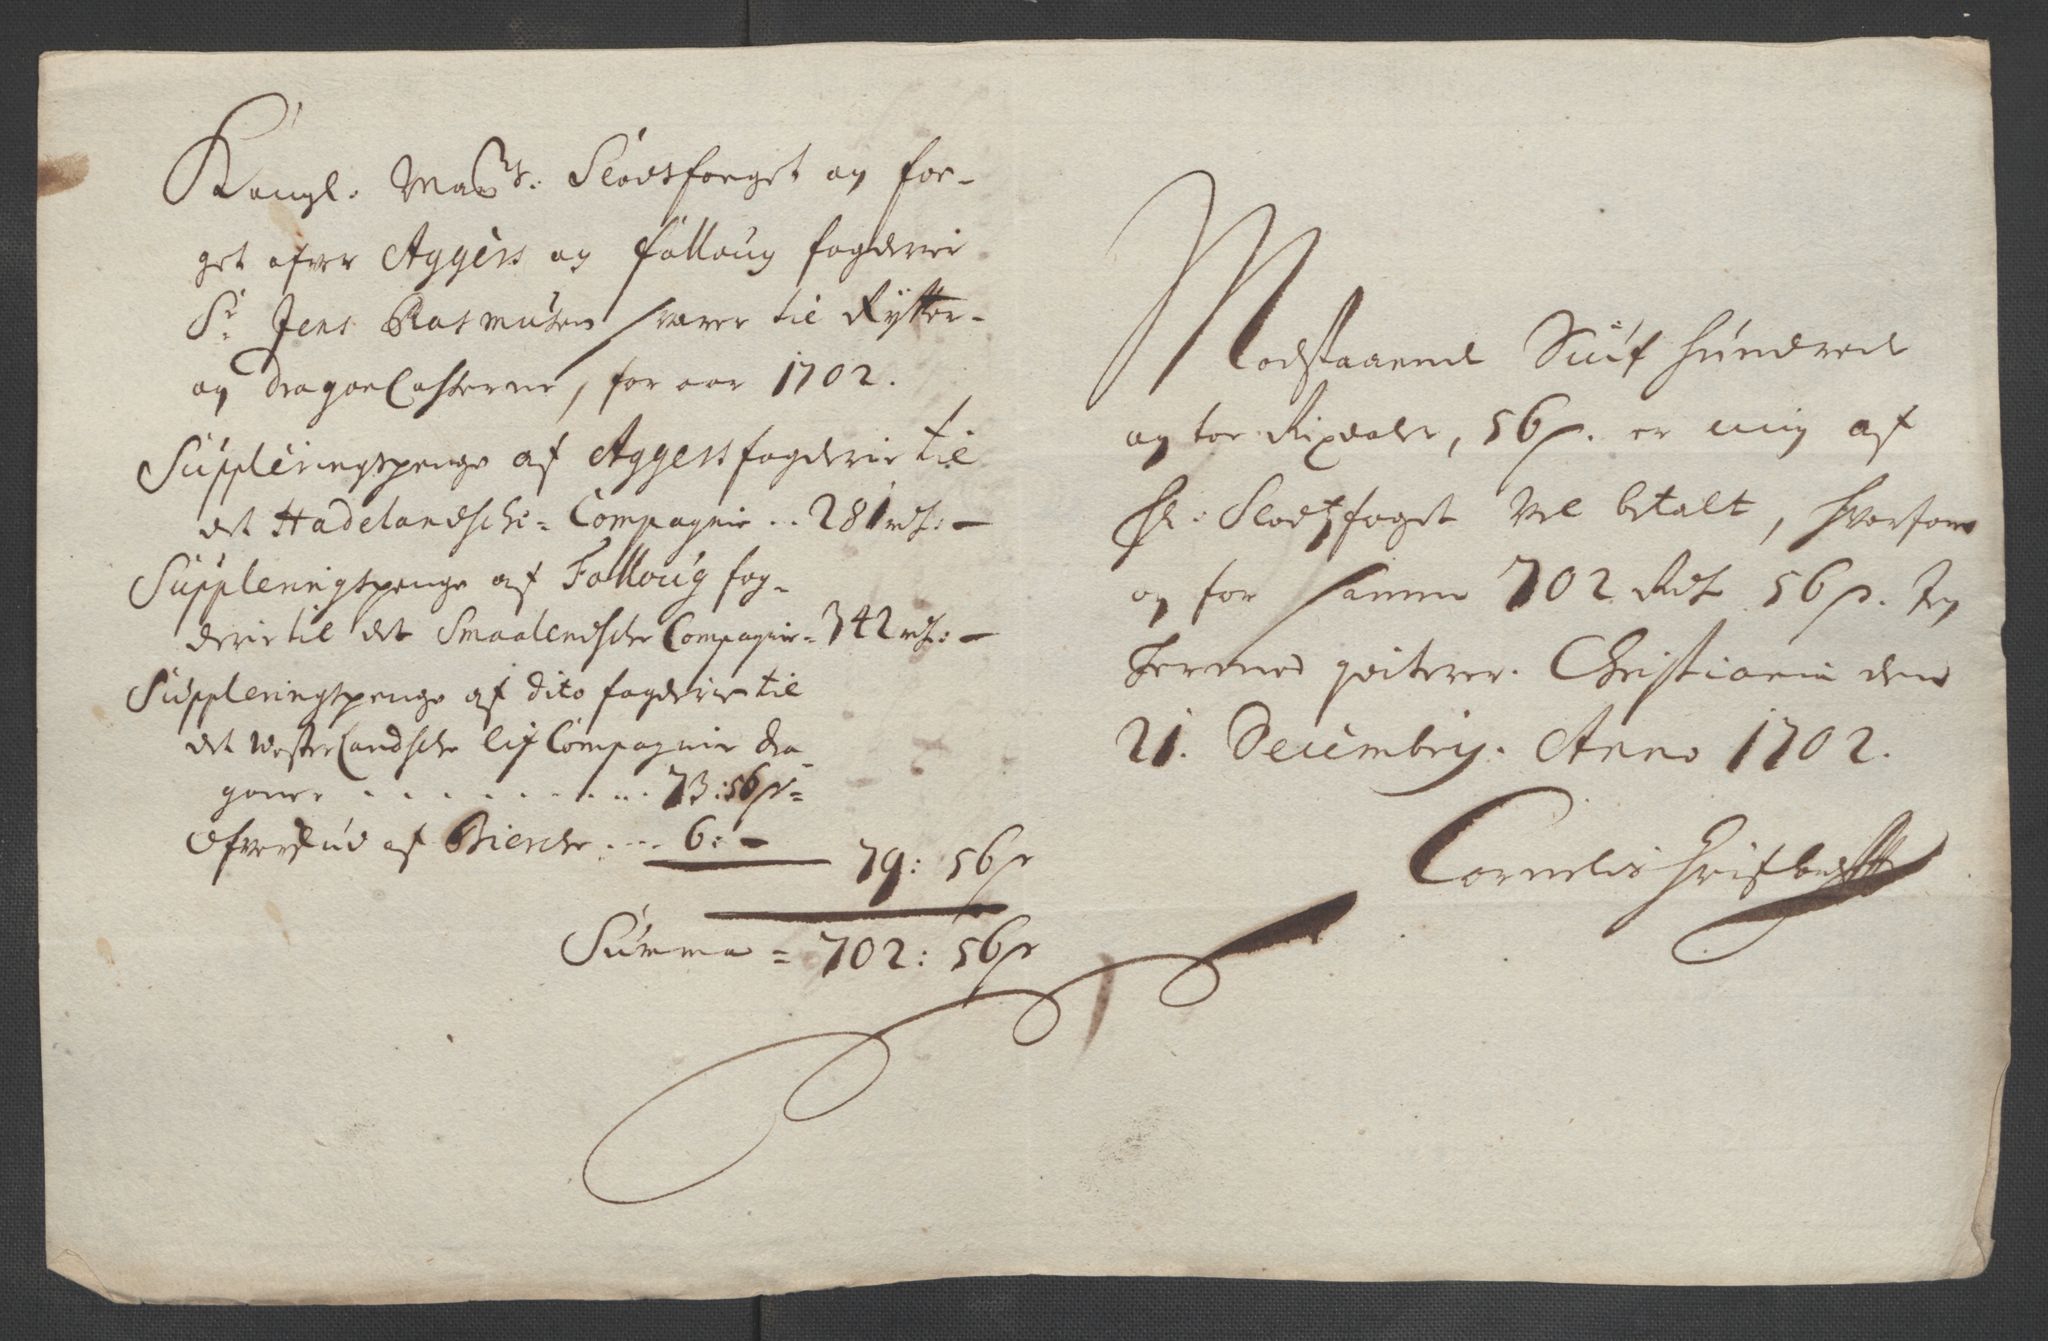 Kongl. Mayts: Slodsfoeget og foe-
get ofver Aggers og Folloug fogderie
Sr. Jens Rasmusen svarer til Rytter-
og Dragon Casserne, for aar 1702.
Suppleringspenge af Aggers fogderie til
det Hadelandsche= Compagnie .. 281 rdr: —
Suppleringspenge af Folloug fog-
derie til det Smaalendsche Compagnie= 342 rdr: —
Suppleringspenge af dito fogderie til
det Westerlandsche lif Compagnie dra-
goner . . . . . . . . . . . 73: 56 s=
Ofverskud af Biersche .... 6: —
79: 56 s
Summa = 702: 56 s
Modstaaende Siuf hundrede
og toe Rixdaler, 56 s. er mig af
Hr. Slodsfoget vel betalt, hvorfore
og for samme 702 Rdr 56 s. Jeg
hermed qviterer. Christiania den
21. Decembrij. Anno 1702.
Cornelis